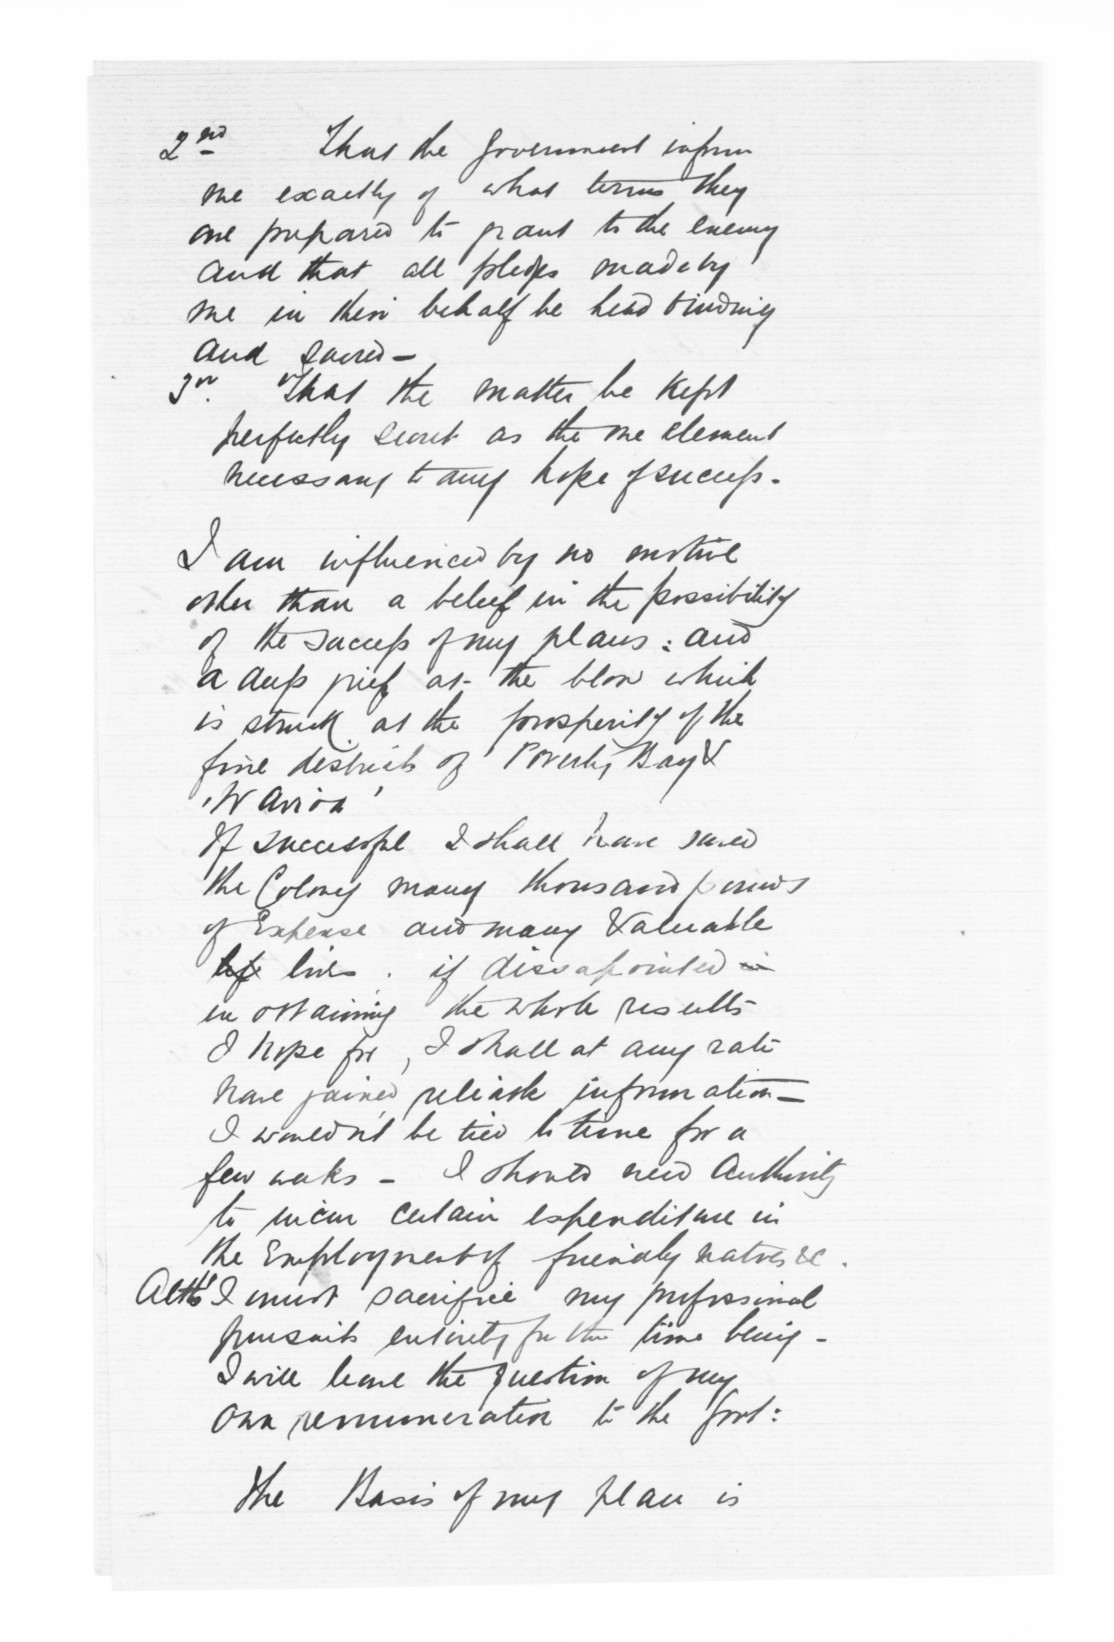 2nd That the Government inform
me exactly of what terms they
are prepared to grant to the enemy
and that all pledges made by
me in their behalf be held binding
and sacred —
3rd. That the matter be kept
perfectly secret as the one element
necessary to any hope of success.
I am influenced by no motive
other than a belief in the possibility
of the success of my plans : and
a deep grief at the blow which
is struck at the prosperity of the
fine districts of Poverty Bay &
'Wairoa'
If successful I shall have saved
the Colony many thousand pounds
of Expense and many Valuable
life lives . if dissapointed in
in obtaining the whole results
I hope for, I shall at any rate
have gained reliable information —
I wouldn't be tied to time for a
few weeks — I should need Authority
to incur certain expenditure in
the Employment of friendly natives &c.
Altho' I must sacrifice my professional
pursuits entirely for the time being —
I will leave the question of my
own remuneration to the Govt:
The Basis of my plan is